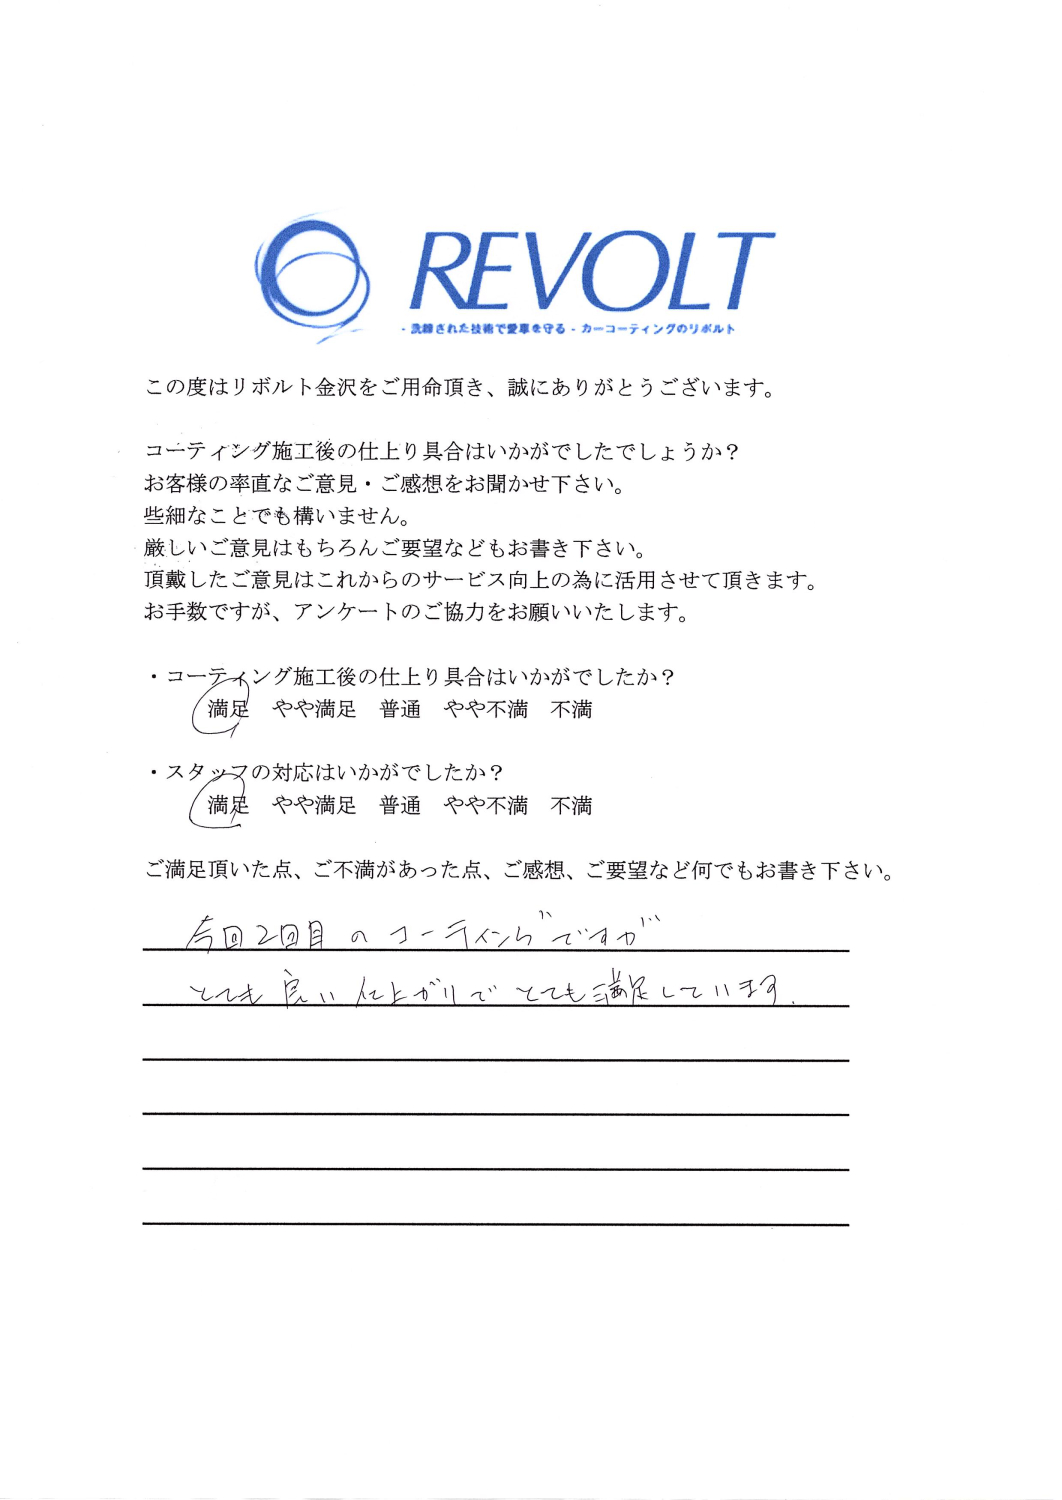 REVOLT
- 洗練された技術で愛車を守る - カーコーティングのリボルト
この度はリボルト金沢をご用命頂き、誠にありがとうございます。
コーティング施工後の仕上り具合はいかがでしたでしょうか？
お客様の率直なご意見・ご感想をお聞かせ下さい。
些細なことでも構いません。
厳しいご意見はもちろんご要望などもお書き下さい。
頂戴したご意見はこれからのサービス向上の為に活用させて頂きます。
お手数ですが、アンケートのご協力をお願いいたします。
・コーティング施工後の仕上り具合はいかがでしたか？
満足　やや満足　普通　やや不満　不満
・スタッフの対応はいかがでしたか？
満足　やや満足　普通　やや不満　不満
ご満足頂いた点、ご不満があった点、ご感想、ご要望など何でもお書き下さい。
今回2回目のコーティングですが
とても良い仕上がりでとても満足しています.